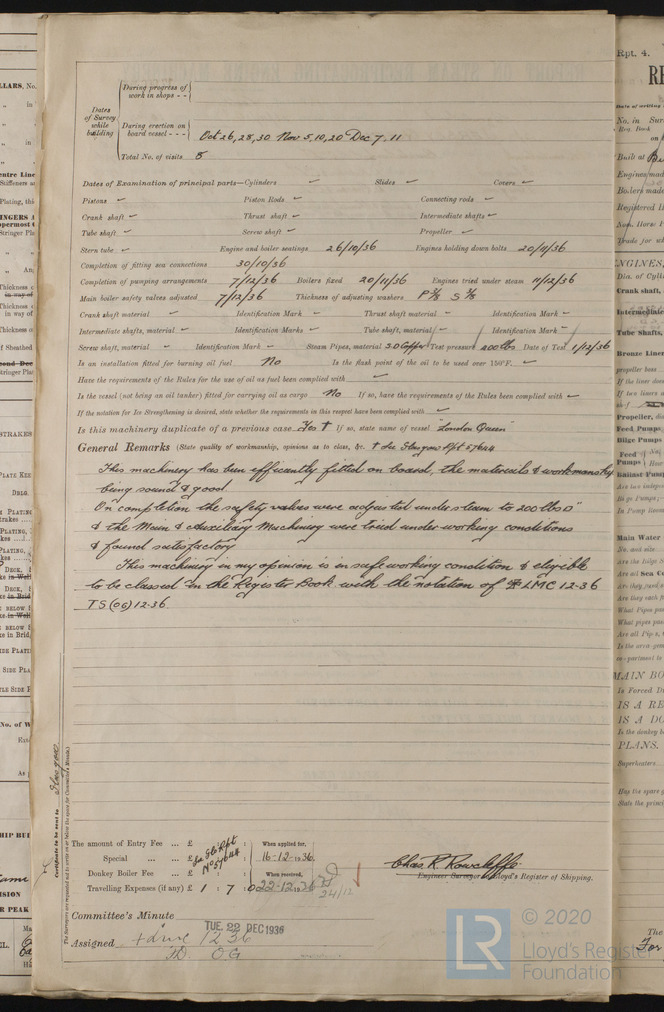 During progress of
work in shops - -
Dates
of Survey
while
building
During erection on
board vessel - - - Oct 26, 28, 30 Nov 5, 10, 20 Dec 7. 11
Total No. of visits 8
Dates of Examination of principal parts—Cylinders ✓ Slides ✓ Covers ✓
Pistons ✓ Piston Rods ✓ Connecting rods ✓
Crank shaft ✓ Thrust shaft ✓ Intermediate shafts ✓
Tube shaft ✓ Screw shaft ✓ Propeller ✓
Stern tube ✓ Engine and boiler seatings 26/10/36 Engines holding down bolts 20/11/36
Completion of fitting sea connections 30/10/36
Completion of pumping arrangements 7/12/36 Boilers fixed 20/11/36 Engines tried under steam 11/12/36
Main boiler safety valves adjusted 7/12/36 Thickness of adjusting washers P 3/8 S 3/8
Crank shaft material ✓ Identification Mark ✓ Thrust shaft material ✓ Identification Mark ✓
Intermediate shafts, material ✓ Identification Marks ✓ Tube shaft, material ✓ Identification Mark ✓
Screw shaft, material ✓ Identification Mark ✓ Steam Pipes, material S.D Copper Test pressure 400 lbs Date of Test 1/12/36
Is an installation fitted for burning oil fuel No Is the flash point of the oil to be used over 150°F. ✓
Have the requirements of the Rules for the use of oil as fuel been complied with ✓
Is the vessel (not being an oil tanker) fitted for carrying oil as cargo No If so, have the requirements of the Rules been complied with ✓
If the notation for Ice Strengthening is desired, state whether the requirements in this respect have been complied with ✓
Is this machinery duplicate of a previous case Yes † If so, state name of vessel "London Queen"
General Remarks (State quality of workmanship, opinions as to class, &c. † See Glasgow Rpt 57644
This machinery has been efficiently fitted on board, the materials & workmanship
being sound & good
On completion the safety valves were adjusted under steam to 200 lbs □"
& the Main & Auxiliary Machinery were tried under working conditions
& found satisfactory
This machinery in my opinion is in safe working condition & eligible
to be classed in the Register Book with the notation of ✠ LMC 12-36
TS (OG) 12-36.
Certificate to be sent to Glasgow
The amount of Entry Fee ... £ See Gls Rpt No 57644 When applied for,
Special ... ... £ 16-12-1936
Donkey Boiler Fee ... £ When received,
Travelling Expenses (if any) £ 1 : 7 : 0 22-12-1936
24/12
Chas. R. Rowcliffe
Engineer Surveyor to Lloyd's Register of Shipping.
Committee's Minute TUE. 22 DEC 1936
Assigned + LMC 12 36
OG
LR
© 2020
Lloyd's Register
Foundation
Rpt. 4.